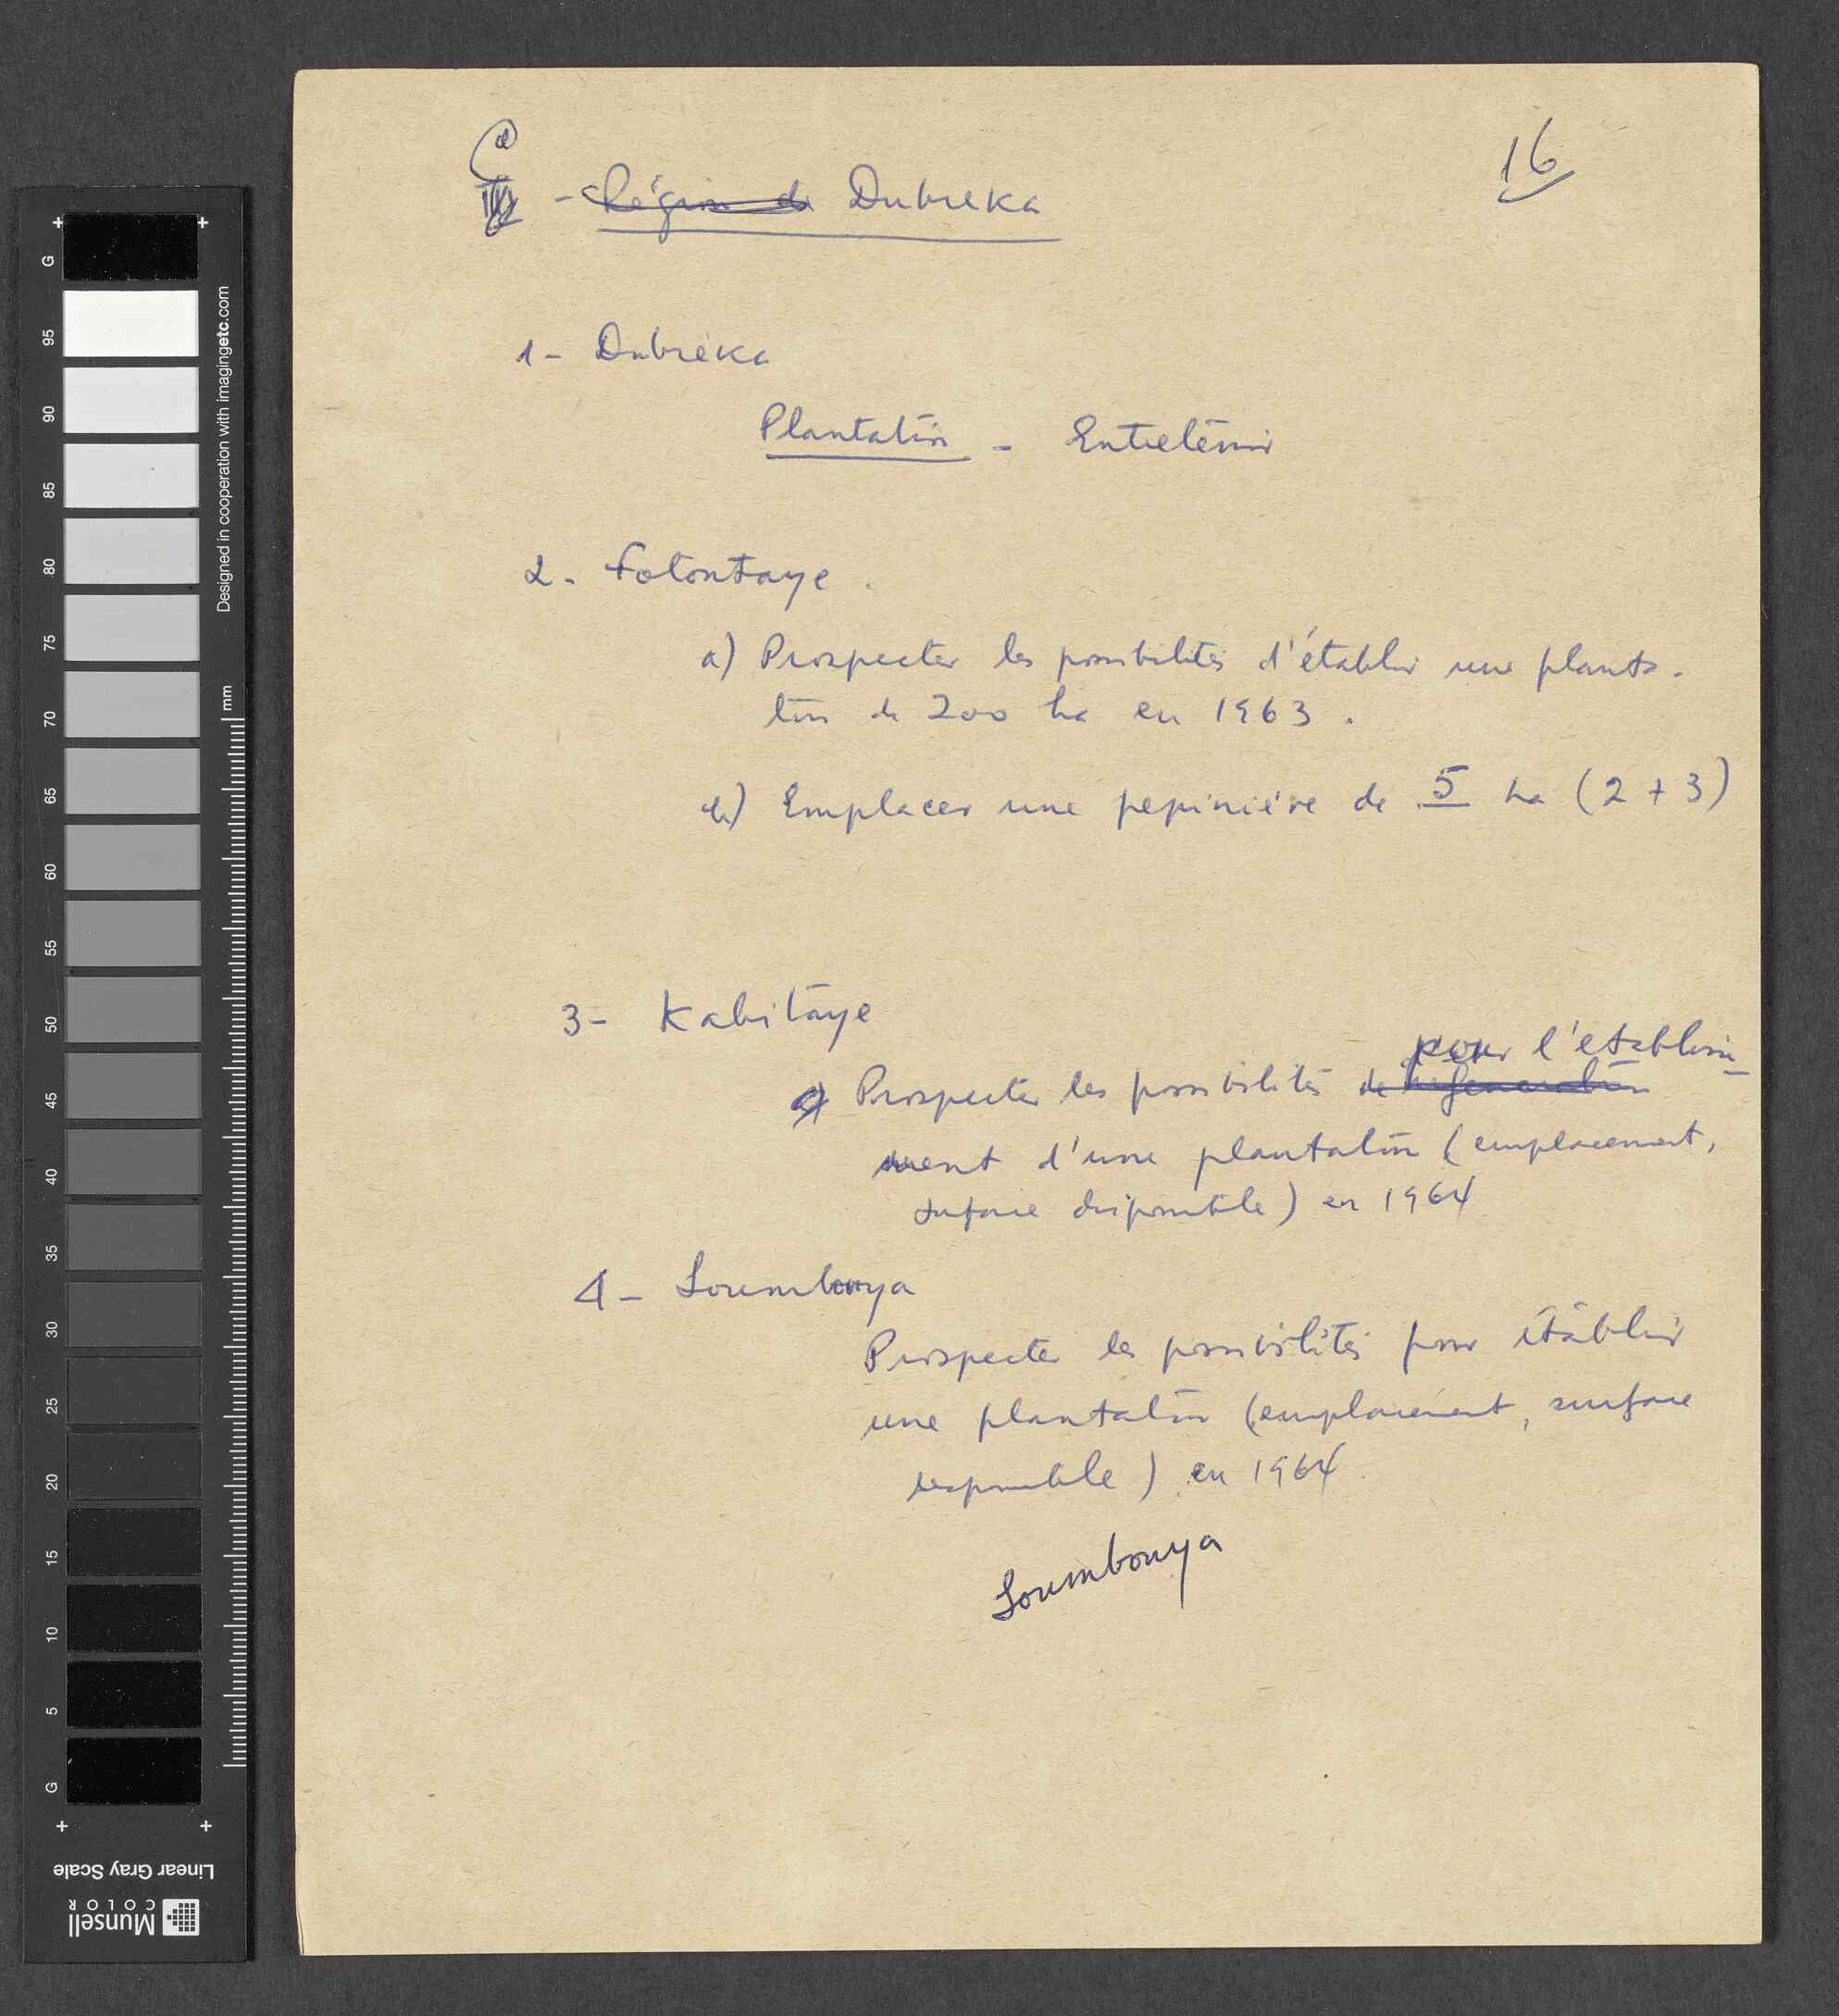 16
d
- Région de Dubreka
1- Dubréka
Plantation - Entretenir
2. Fotontaye.
a) Prospecter les possibilités d'établir une planta-
tion de 200 ha en 1963.
b) Emplacer une pepinière de 5 ha (2 + 3)
3- Kabitaye
pour l'etablisse-
a) Prospecter les possibilités de regeneration
ment d'une plantation (emplacement,
surface disponible) en 1964
4- Soumbouya
Prospecter les possibilités pour établir
une plantation (emplacement, surface
disponible) en 1964
Soumbouya
G
95
90
85
80
75
70
65
60
55
50
45
40
35
30
25
20
15
10
5
G
Designed in cooperation with imagingetc.com
mm
Linear Gray Scale
Munsell
COLOR